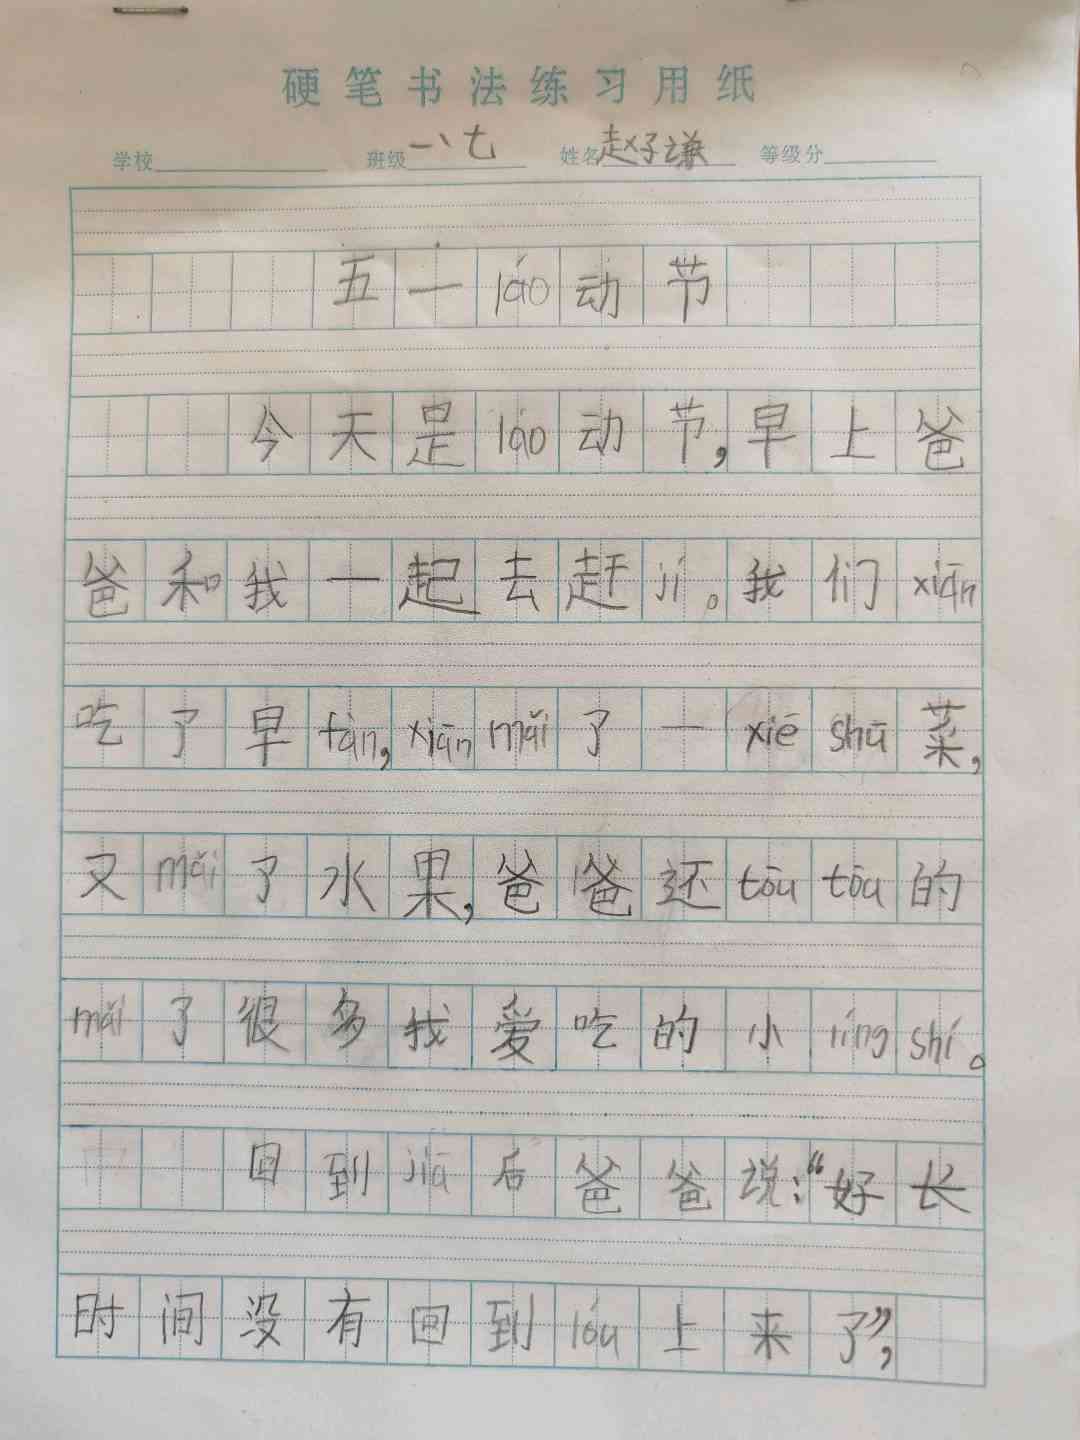 硬笔书法练习用纸
学校 班级 一、七 姓名 赵子谦 等级分
五一láo动节
今天是láo动节,早上爸
爸和我一起去赶jí。我们xiān
吃了早fàn,xiān mǎi了一xiē shū菜,
又mǎi了水果,爸爸还tōu tōu的
mǎi了很多我爱吃的小líng shí。
回到jiā后爸爸说:“好长
时间没有回到lóu上来了”,